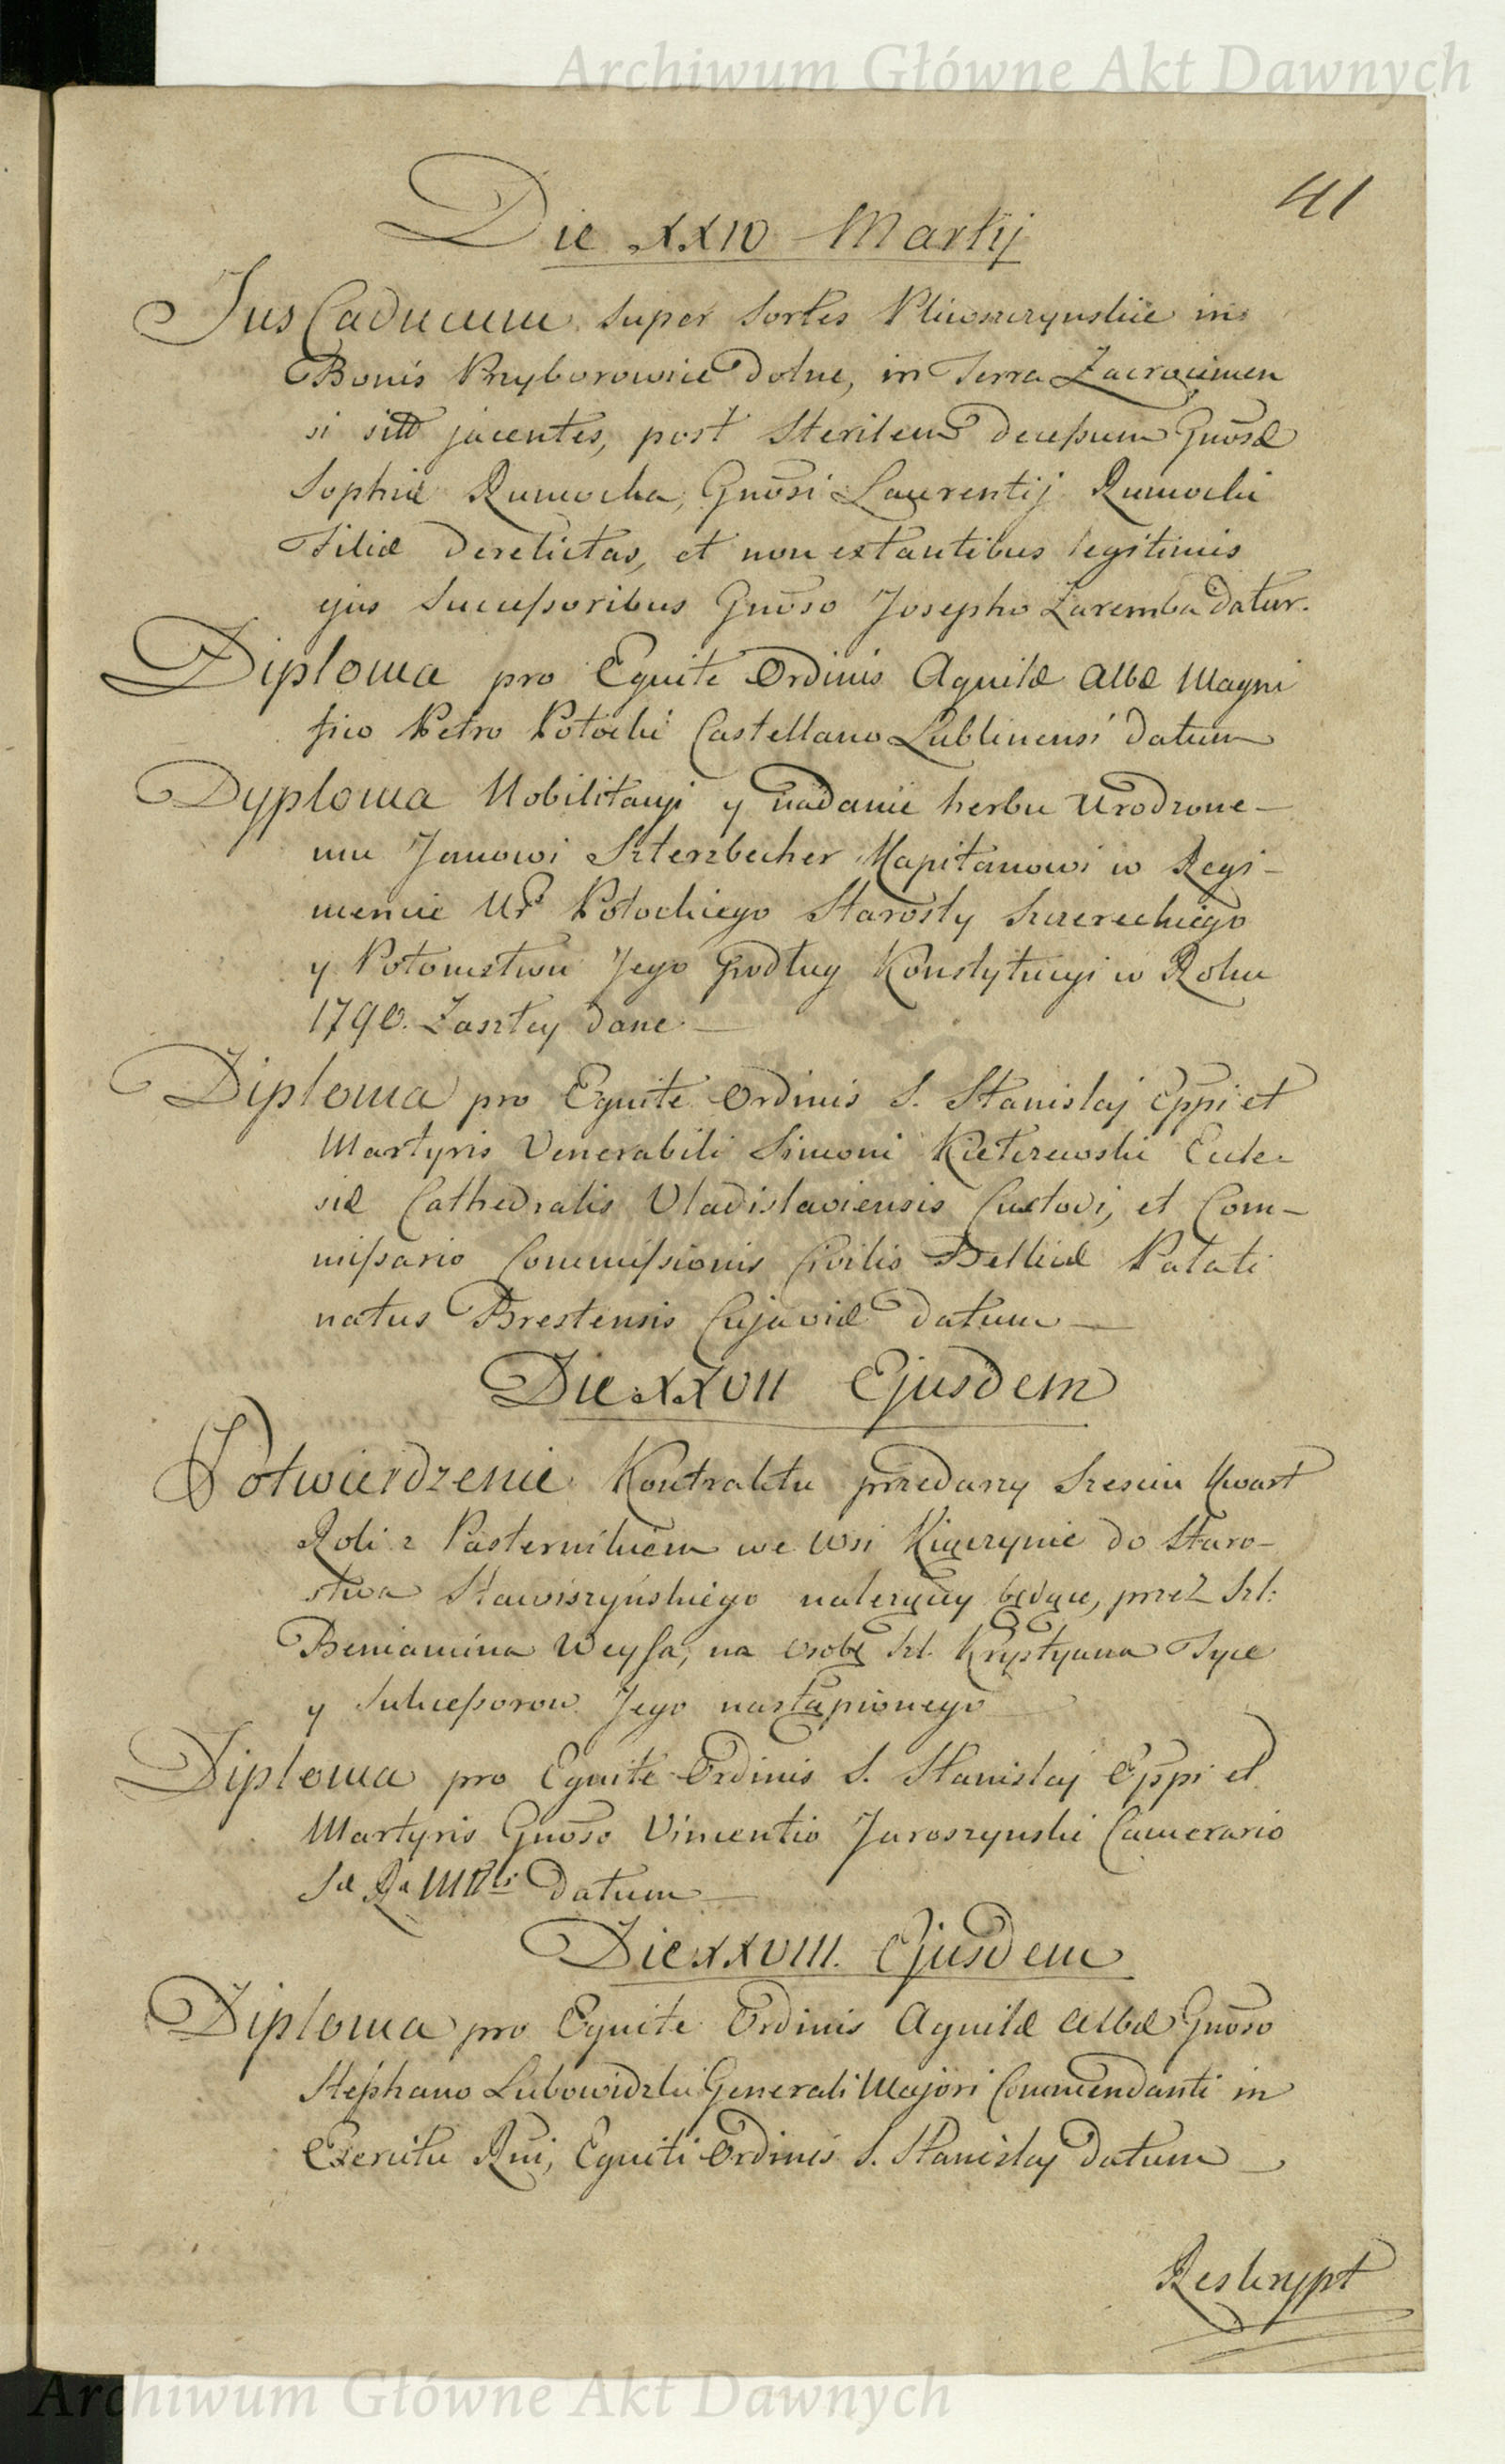 Archiwum Główne Akt Dawnych
41
Die XXIV Martij
Jus Caducum super Sortes Pliwszczynskie in
Bonis Przyborowice Dolne, in Terra Zacrocimen
si sitt jacentes, post sterilem decessum Gnosæ
Sophiæ Rumocka, Gnosi Laurentij Rumocki
Filiæ derelictas, et non extantibus legitimis
ejus Successoribus Gnoso Josepho Zaremba datur.
Diploma pro Equite Ordinis Aquilæ Albæ Magni
fico Petro Potocki Castellano Lublinensi datum
Dyploma Nobilitacyi y nadanie herbu Urodzone-
mu Janowi Szterzbecher Kapitanowi w Regi-
mencie Ur Potockiego Starosty Szczereckiego
y Potomstwu Jego podług Konstytucyi w Roku
1790. Zaszłey dane
Diploma pro Equite Ordinis S. Stanislaj Eppi et
Martyris Venerabili Simoni Kietczewski Eccle-
siæ Cathedralis Vladislaviensis Custodi, et Com-
missario Commissionis Civilis Bellicæ Palati
natus Brestensis Cujaviæ datum
Die XXVII Ejusdem
Potwierdzenie Kontraktu przedarzy Szesciu Kwart
Roli z Pasternikiem we Wsi Kiączynie do Staro-
stwa Stawiszyńskiego należący będące, przez Szl:
Beniamina Weyssa, na osobę Szl. Krystyana Tyce
y Sukcessorow Jego nastąpionego
Diploma pro Equite Ordinis S. Stanislaj Eppi et
Martyris Gnoso Vincentio Jaroszynski Camerario
Sæ Ræ Mtis datum
Die XXVIII. Ejusdem
Diploma pro Equite Ordinis Aquilæ Albæ Gnoso
Stephano Lubowidzki Generali Majori Commendanti in
Exercitu Rni, Equiti Ordinis S. Stanislaj datum
Reskrypt
Archiwum Główne Akt Dawnych